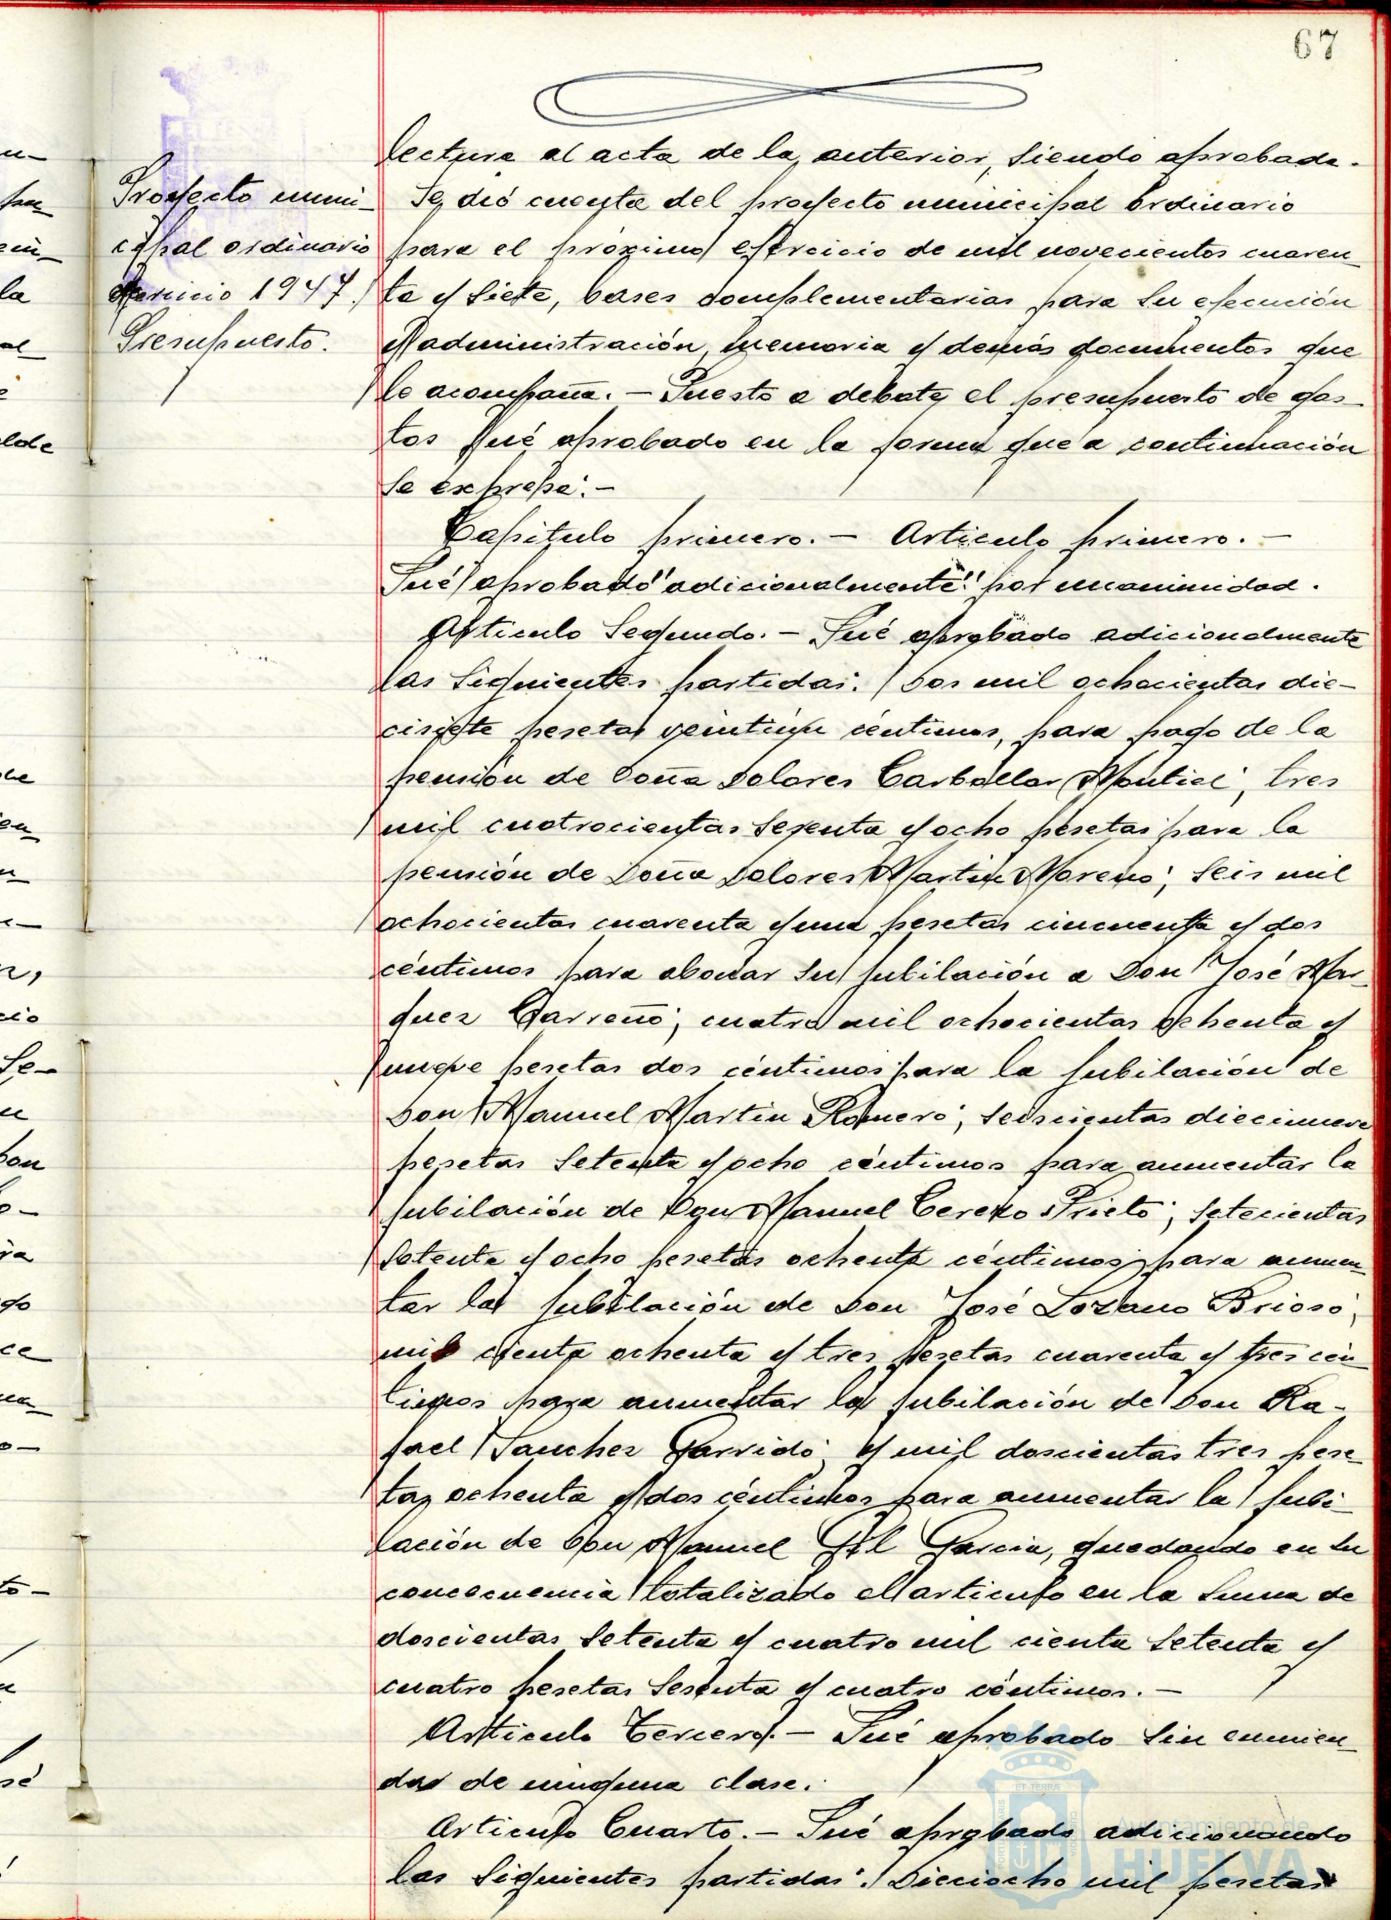 67
lectura al acta de la anterior, siendo aprobada.
Proyecto muni-
cipal ordinario
ejercicio 1947.
Presupuesto.
Se dió cuenta del proyecto municipal ordinario
para el próximo ejercicio de mil novecientos cuaren-
ta y siete, bases complementarias para su ejecución
y administración, memoria y demás documentos que
le acompaña. — Puesto a debate el presupuesto de gas-
tos fué aprobado en la forma que a continuación
se expresa: —
Capítulo primero. — Artículo primero. —
Fué aprobado "adicionalmente" por unanimidad.
Artículo Segundo. — Fué aprobado adicionalmente
las siguientes partidas: Dos mil ochocientas die-
cisiete pesetas veintiún céntimos, para pago de la
pensión de Doña Dolores Carballar Montiel; tres
mil cuatrocientas sesenta y ocho pesetas para la
pensión de Doña Dolores Martín Moreno; seis mil
ochocientas cuarenta y una pesetas cincuenta y dos
céntimos para abonar su jubilación a Don José Mar-
quez Carreño; cuatro mil ochocientas ochenta y
nueve pesetas dos céntimos para la jubilación de
Don Manuel Martin Romero; seiscientas diecinueve
pesetas setenta y ocho céntimos para aumentar la
jubilación de Don Manuel Cerezo Prieto; setecientas
setenta y ocho pesetas ochenta céntimos para aumen-
tar la jubilación de Don José Lozano Brioso;
mil cienta ochenta y tres pesetas cuarenta y tres cén-
timos para aumentar la jubilación de Don Ra-
fael Sanchez Garrido; y mil doscientas tres pese-
tas ochenta y dos céntimos para aumentar la jubi-
lación de Don Manuel Gil Garcia, quedando en su
concecuencia totalizado el articulo en la suma de
doscientas setenta y cuatro mil cienta setenta y
cuatro pesetas sesenta y cuatro céntimos. —
Artículo Tercero. — Fué aprobado sin enmien-
das de ninguna clase.
Articulo Cuarto. — Fué aprobado adicionando
las siguientes partidas: Dieciocho mil pesetas
Ayuntamiento de
HUELVA